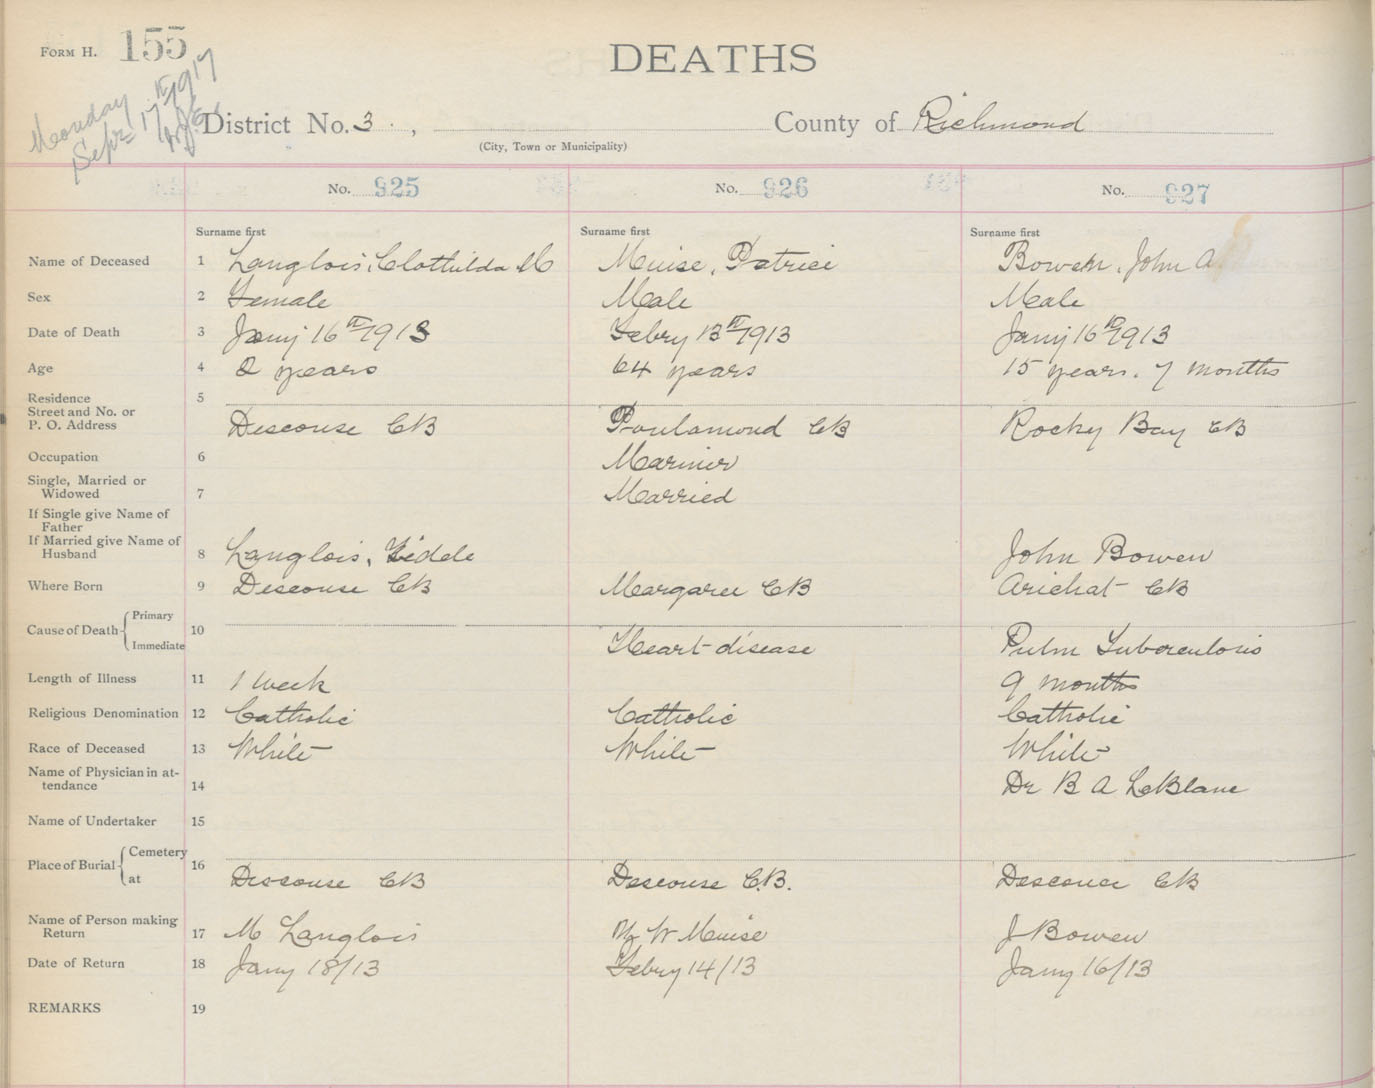 FORM H. 155
DEATHS
Monday
Sept 17th 1917
District No. 3. , County of Richmond
(City, Town or Municipality)
No. 925 No. 926 No. 927
Surname first Surname first Surname first
Name of Deceased 1 Langlois, Clothilda M Muise, Patrice Bowen, John A
Sex 2 Female Male Male
Date of Death 3 Jany 16th 1913 Febry 13th 1913 Jany 16th 1913
Age 4 2 years 64 years 15 years. 7 months
Residence 5
Street and No. or
P. O. Address Descouse CB Poulamond CB Rocky Bay CB
Occupation 6 Mariner
Single, Married or
Widowed 7 Married
If Single give Name of
Father
If Married give Name of
Husband 8 Langlois, John Bowen
Where Born 9 Descouse CB Margaree CB Arichat CB
Cause of Death Primary 10
Immediate Heart disease Pulm Tuberculosis
Length of Illness 11 1 week 9 months
Religious Denomination 12 Catholic Catholic Catholic
Race of Deceased 13 White White White
Name of Physician in at-
tendance 14 Dr B A LeBlanc
Name of Undertaker 15
Place of Burial Cemetery 16
at Descouse CB Descouse C.B. Descouse CB
Name of Person making
Return 17 M Langlois W Muise J Bowen
Date of Return 18 Jany 18/13 Febry 14/13 Jany 16/13
REMARKS 19